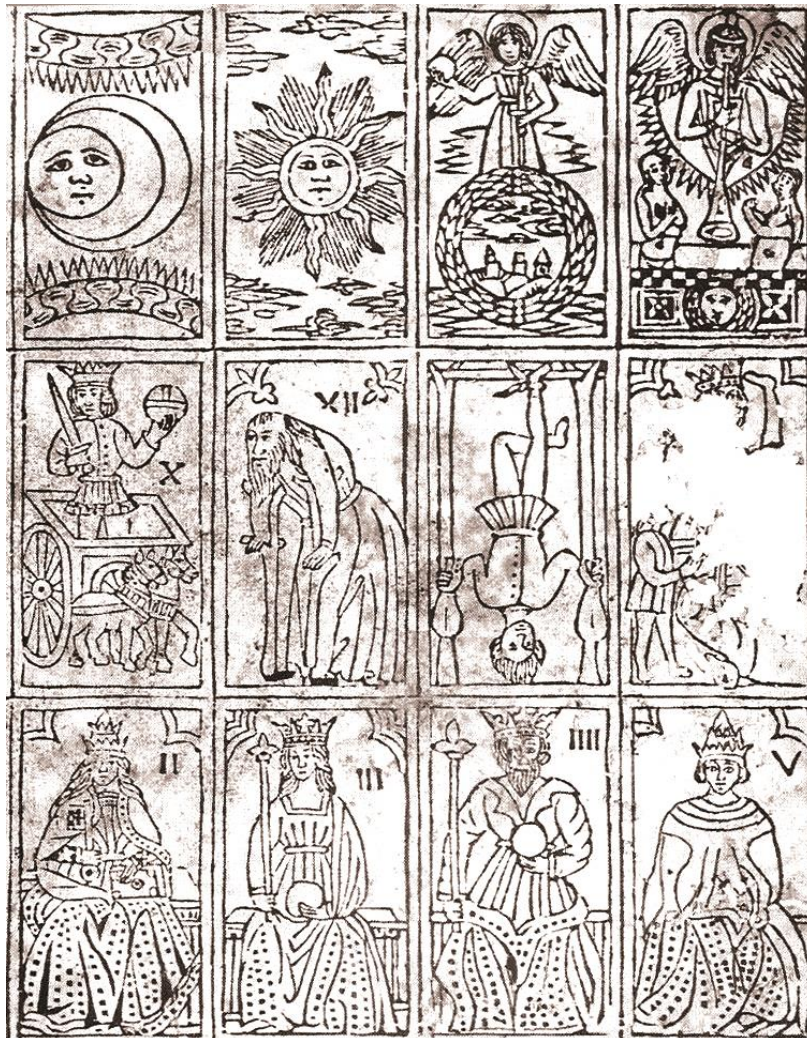 X
XII
II
III
IIII
V